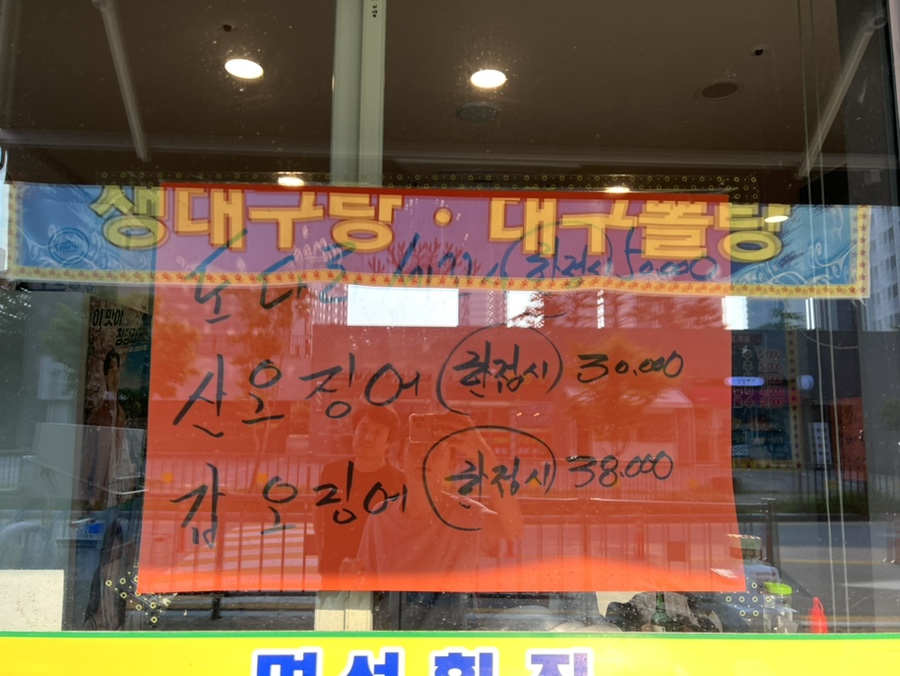 생대구탕 · 대구뽈탕
도다리 세꼬시 (한접시) 50.000
산오징어 (한접시) 30.000
갑오징어 (한접시) 38.000
이 맛이